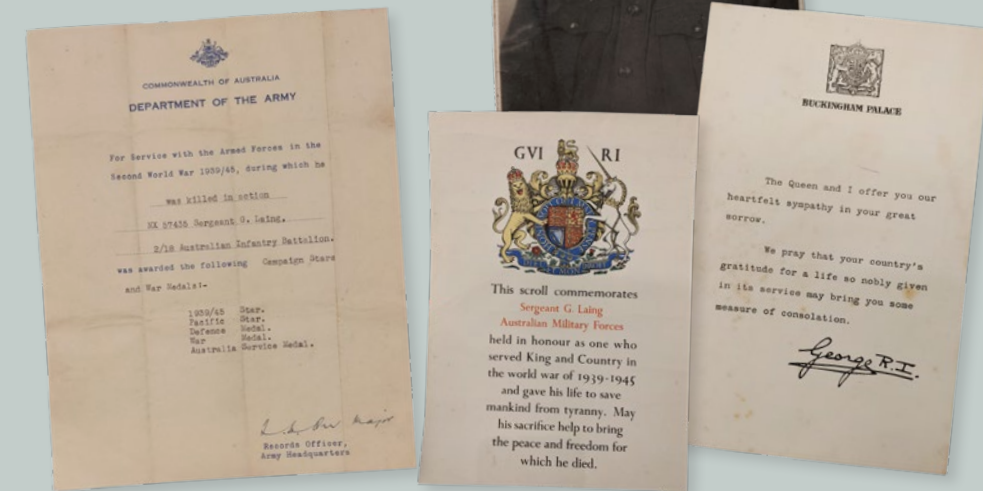 COMMONWEALTH OF AUSTRALIA
DEPARTMENT OF THE ARMY
For Service with the Armed Forces in the
Second World War 1939/45, during which he
was killed in action
NX 57435 Sergeant G. Laing.
2/18 Australian Infantry Battalion.
was awarded the following Campaign Stars
and War Medals:-
1939/45 Star.
Pacific Star.
Defence Medal.
War Medal.
Australia Service Medal.
Major
Records Officer,
Army Headquarters
GVI RI
This scroll commemorates
Sergeant G. Laing
Australian Military Forces
held in honour as one who
served King and Country in
the world war of 1939-1945
and gave his life to save
mankind from tyranny. May
his sacrifice help to bring
the peace and freedom for
which he died.
BUCKINGHAM PALACE
The Queen and I offer you our
heartfelt sympathy in your great
sorrow.
We pray that your country's
gratitude for a life so nobly given
in its service may bring you some
measure of consolation.
George R.I.